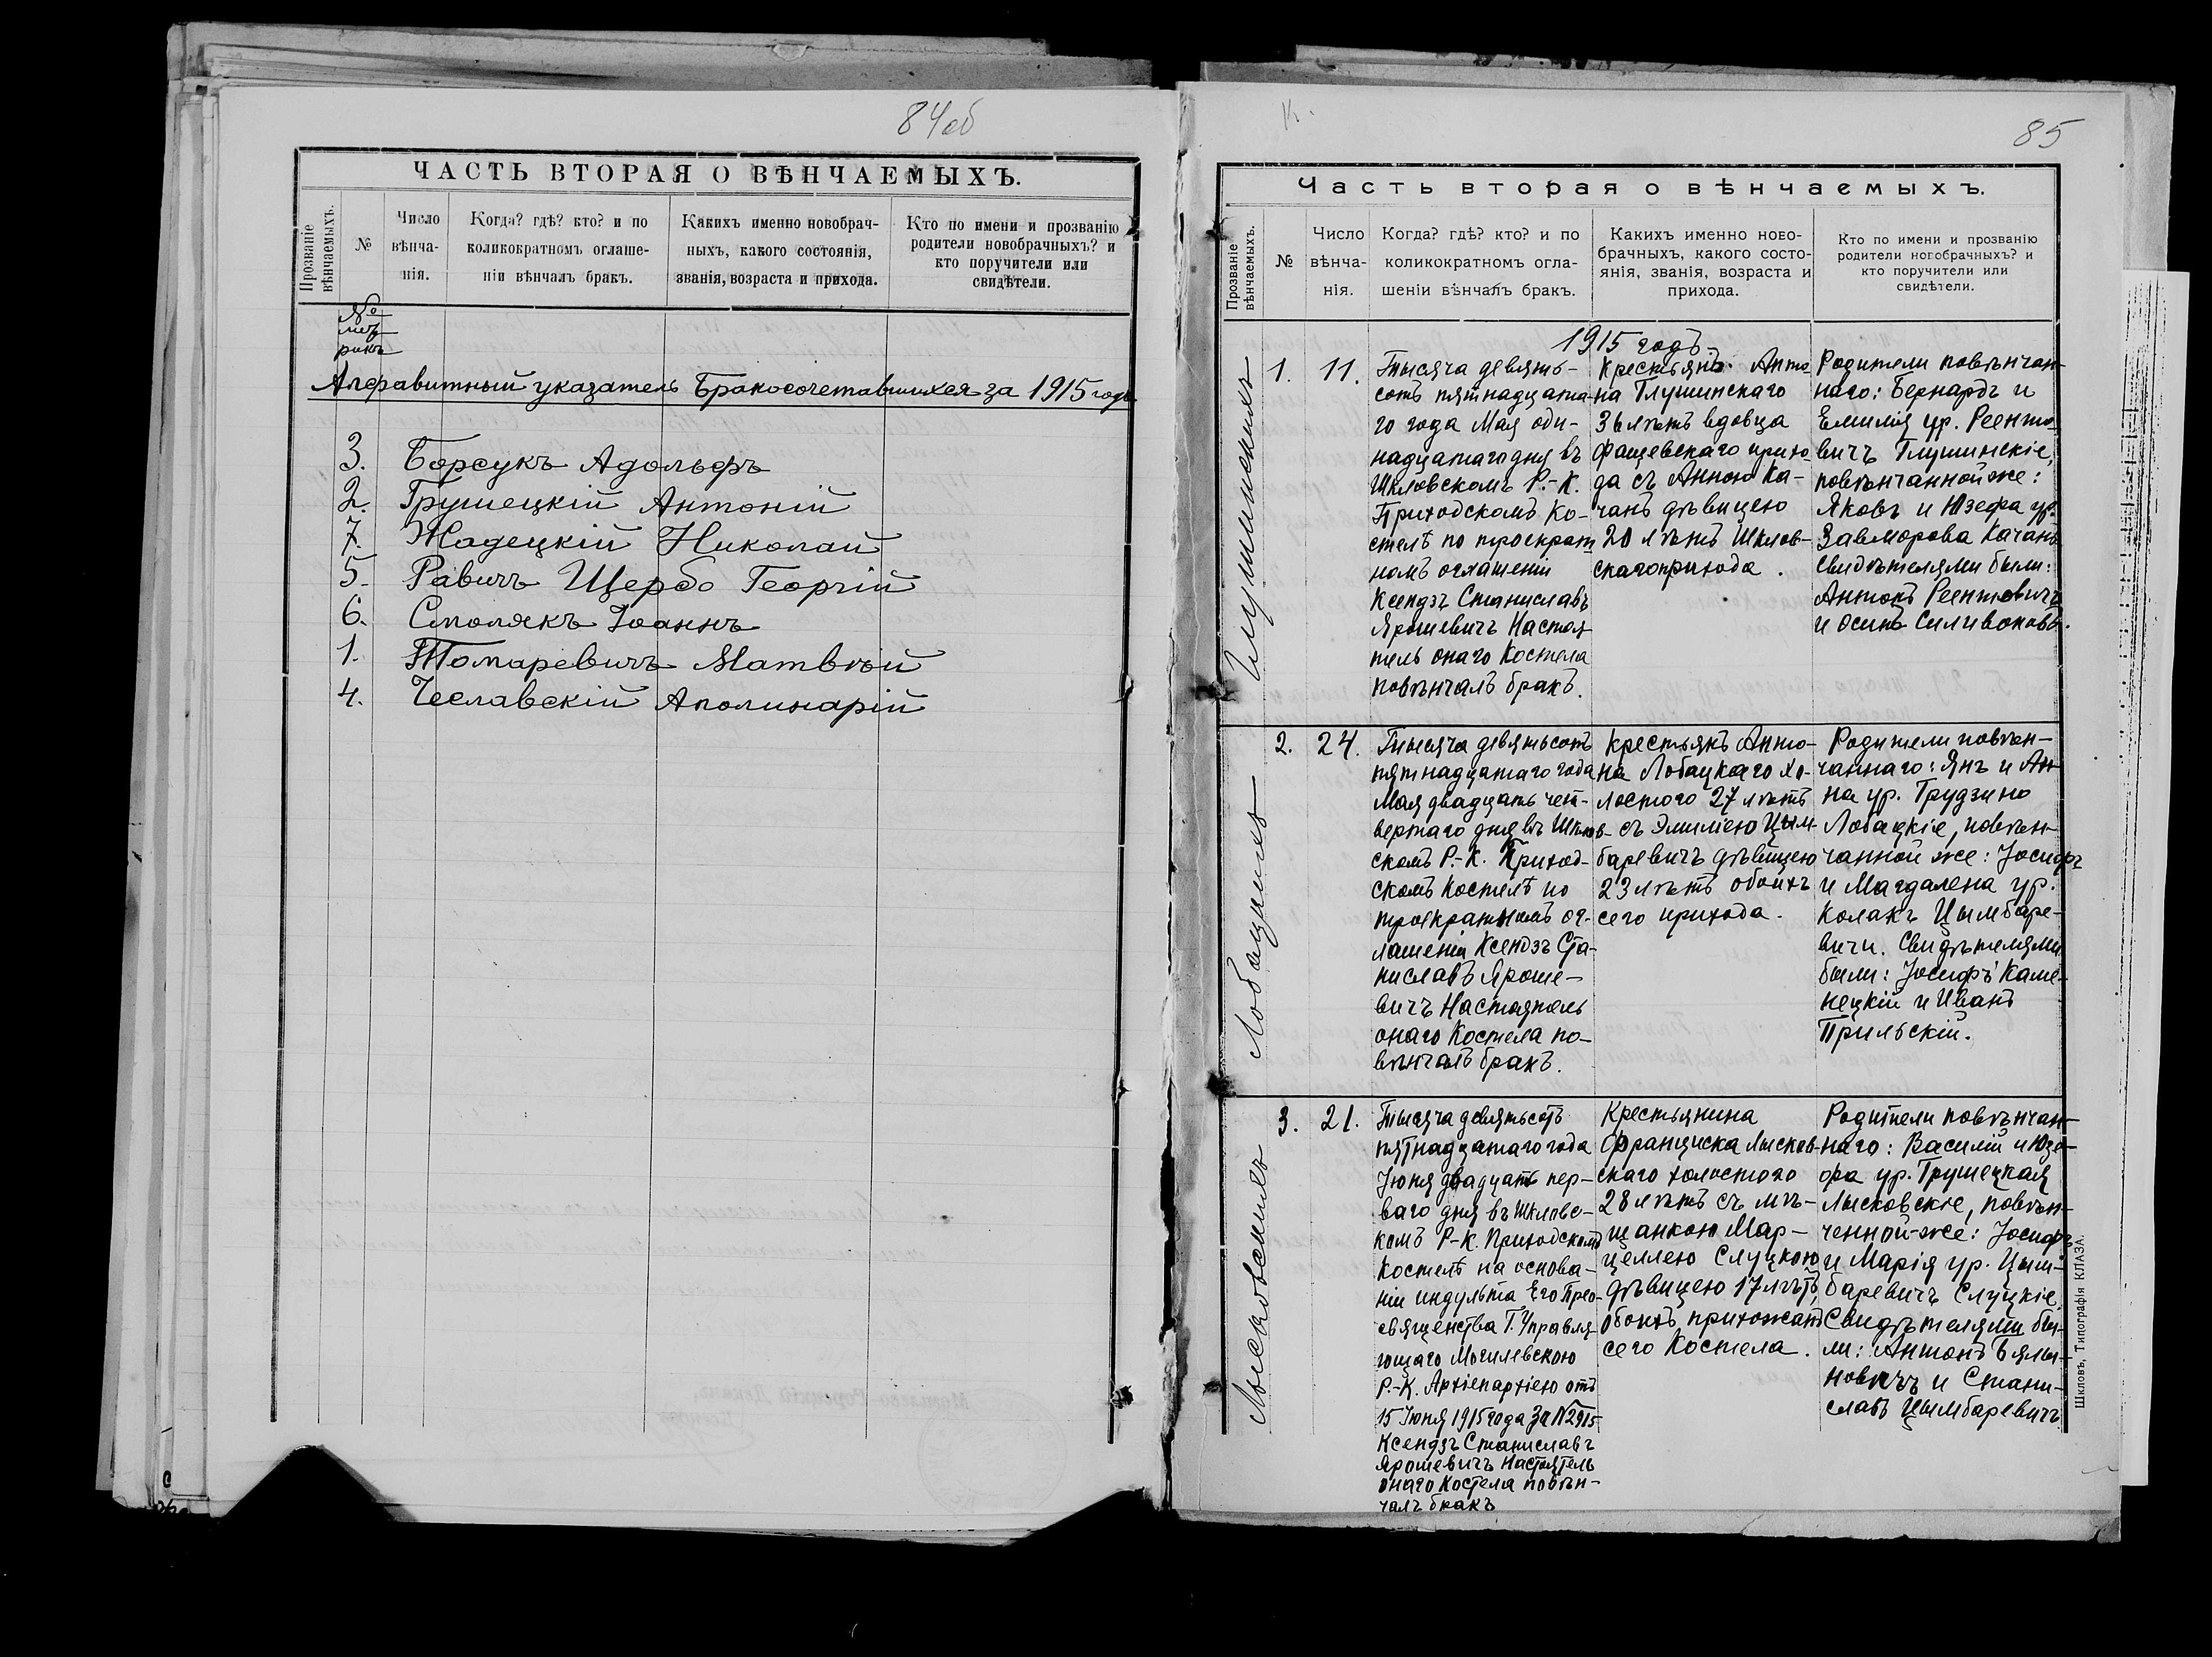 84об
ЧАСТЬ ВТОРАЯ О ВѢНЧАЕМЫХЪ.
Прозваніе вѣнчаемыхъ.
№
Число вѣнча-нія.
Когда? гдѣ? кто? и по
коликократномъ оглаше-
ніи вѣнчалъ бракъ.
Какихъ именно новобрач-
ныхъ, какого состоянія,
званія, возраста и прихода.
Кто по имени и прозванію
родители новобрачныхъ? и
кто поручители или
свидѣтели.
№
мет
рикъ
Алфавитный указатель Бракосочетавшихся за 1915 годъ
3. Борсукъ Адольфъ
2. Грушецкій Антоній
7. Жадецкій Николай
5. Равичъ Щербо Георгій
6. Смолякъ Іоаннъ
1. Томаревичъ Матвѣй
4. Чеславскій Аполинарій
85
Часть вторая о вѣнчаемыхъ.
Прозваніе вѣнчаемыхъ.
№
Число
вѣнча-
нія.
Когда? гдѣ? кто? и по
коликократномъ огла-
шеніи вѣнчалъ бракъ.
Какихъ именно ново-
брачныхъ, какого состо-
янія, званія, возраста и
прихода.
Кто по имени и прозванію
родители новобрачныхъ? и
кто поручители или
свидѣтели.
1915 годъ.
1. 11.
Тысяча девять-
сотъ пятнадцата-
го года Мая оди-
надцатаго дня въ
Шкловскомъ Р.-К.
Приходскомъ Ко-
стелѣ по троекрат
номъ оглашеніи
Ксендзъ Станиславъ
Ярошевичъ Настоя
тель онаго Костела
повѣнчалъ бракъ.
Крестьянъ Анто
на Глушинскаго
36 лѣтъ вдовца
Фащевскаго прихо
да съ Анною Ка-
чанъ дѣвицею
20 лѣтъ Шклов-
скаго прихода.
Родители повѣнчан
наго: Бернардъ и
Емилія ур. Реенто
вичъ Глушинскіе,
повѣнчанной же:
Яковъ и Юзефа ур.
Заморова Качанъ
Свидѣтелями были:
Антонъ Реентовичъ
и Осипъ Силивоновъ.
2. 24.
Тысяча девятьсотъ
пятнадцатаго года
Мая двадцать чет-
вертаго дня въ Шклов-
скомъ Р.-К. Приход-
скомъ Костелѣ по
троекратномъ ог-
лашеніи Ксендзъ Ста-
ниславъ Яроше-
вичъ Настоятель
онаго Костела по-
вѣнчалъ бракъ.
крестьянъ Анто-
на Лобацкаго хо-
лостого 27 лѣтъ
съ Эмиліею Цым-
баревичъ дѣвицею
23 лѣтъ обоихъ
сего прихода.
Родители повѣн-
чаннаго: Янъ и Ан
на ур. Грудзино
Лобацкіе, повѣн-
чанной же: Іосифъ
и Магдалена ур.
Колакъ Цымбаре-
вичи. Свидѣтелями
были: Іосифъ Каме-
нецкій и Иванъ
Прильскій.
3. 21.
Тысяча девятьсотъ
пятнадцатаго года
Іюня двадцать пер-
ваго дня въ Шкловс-
комъ Р-К. Приходскомъ
Костелѣ на основа-
ніи индульта Его Прео-
священства Г. Управля-
ющаго Могилевскою
Р.-К. Архіепархіею отъ
15 Іюня 1915 года за №2915
Ксендзъ Станиславъ
Ярошевичъ Настоятель
онаго Костела повѣн-
чалъ бракъ
Крестьянина
Франциска Лысков-
скаго холостого
28 лѣтъ съ мѣ-
щанкою Мар-
целлею Слуцкою
дѣвицею 17 лѣтъ,
обоихъ прихожанъ
сего Костела.
Родители повѣнчан-
наго: Василій и Юзе-
фа ур. Грушецкая
Лысковскіе, повѣн-
ченной-же: Іосифъ
и Марія ур. Цым-
баревичъ Слуцкіе.
Свидѣтелями бы-
ли: Антонъ Бялы-
новичъ и Стани-
славъ Цымбаревичъ
Шкловъ, Типографія КЛАЗА.